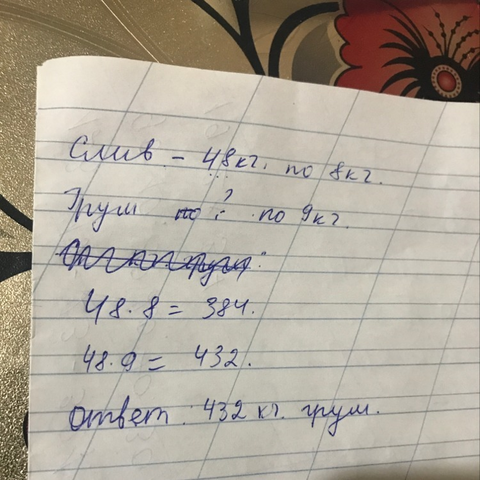 Слив - 48кг. по 8кг.
Груш ? по 9кг.
48. 8 = 384.
48. 9 = 432.
Ответ: 432 кг. груш.